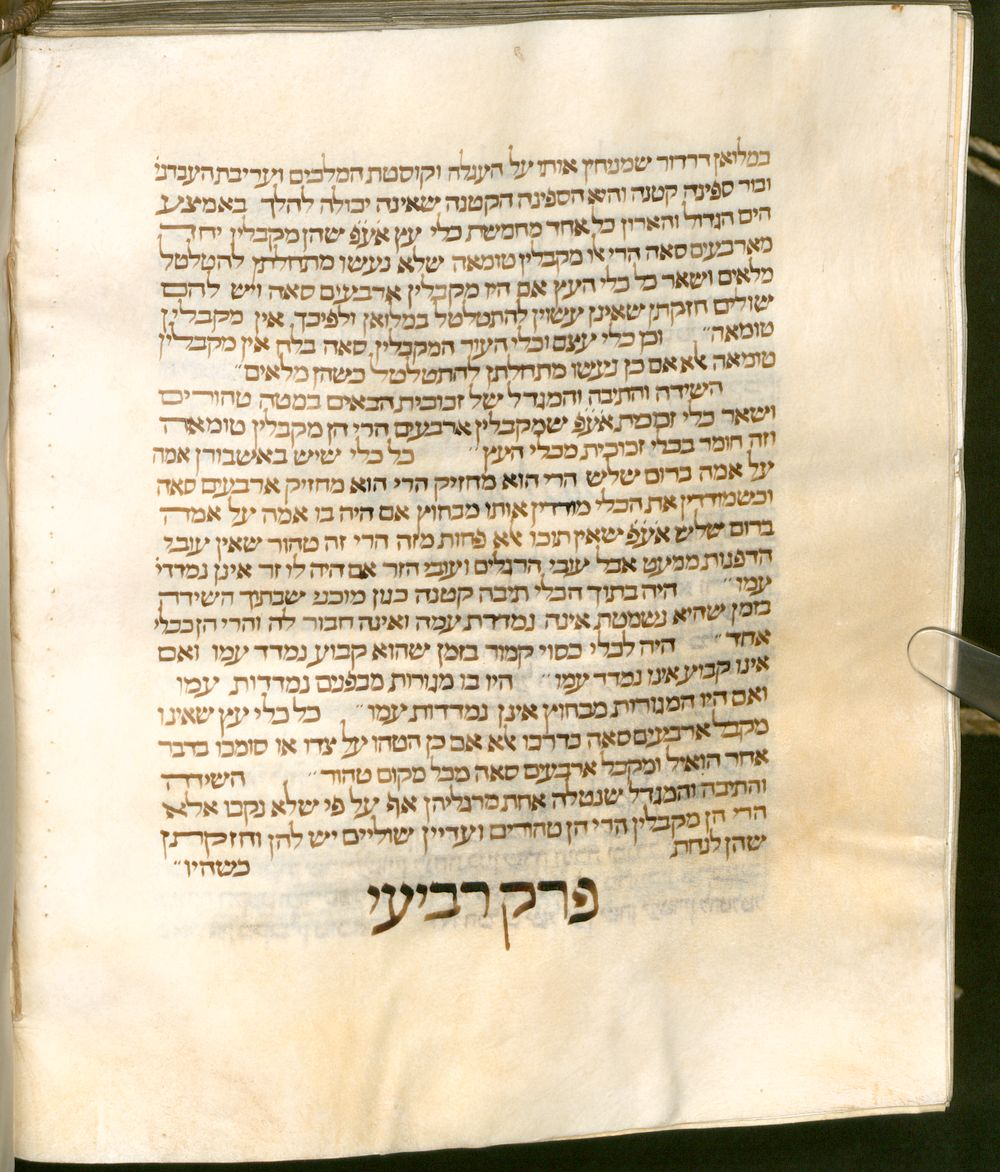 במלואן דרדור שמניחין אותו על העגלה וקוסטת המלכים ועריבת העבדני
ובור ספינה קטנה והיא הספינה הקטנה שאינה יכולה להלך באמצע
הים הגדול והארון כל אחד מחמשת כלי עץ אעפ שהן מקבלין יתר
מארבעים סאה הרי אלו מקבלין טומאה שלא נעשו מתחלתן להטלטל
מלאים ושאר כל כלי העץ אם היו מקבלין ארבעים סאה ויש להם
שולים חזקתן שאינן עשויין להתטלטל במלואן ולפיכך אין מקבלין
טומאה״ וכן כלי עצם וכלי העור המקבלין סאה בלח אין מקבלין
טומאה אלא אם כן נעשו מתחלתן להתטלטל כשהן מלאים״
השידה והתיבה והמגדל של זכוכית הבאים במטה טהורים
ושאר כלי זכוכית אעפ שמקבלין ארבעים הרי הן מקבלין טומאה
וזה חומר בכלי זכוכית מכלי העץ״ כל כלי שיש באשבורן אמה
על אמה ברום שליש הרי הוא מחזיק הרי הוא מחזיק ארבעים סאה
וכשמודדין את הכלי מודדין אותו מבחוץ אם היה בו אמה על אמה
ברום שליש אעפ שאין תוכו אלא פחות מזה הרי זה טהור שאין עובי
הדפנות ממעט אבל עובי הרגלים ועובי הזר אם היה לו זר אינן נמדדי
עמו״ היה בתוך הכלי תיבה קטנה כגון מוכני שבתוך השידה
בזמן שהיא נשמטת אינה נמדדת עמה ואינה חבור לה והרי הן ככלי
אחד״ היה לכלי כסוי קמור בזמן שהוא קבוע נמדד עמו ואם
אינו קבוע אינו נמדד עמו״ היו בו מגורות מבפנים נמדדות עמו
ואם היו המגורות מבחוץ אינן נמדדות עמו״ כל כלי עץ שאינו
מקבל ארבעים סאה כדרכו אלא אם כן הטהו על צדו או סומכו בדבר
אחר הואיל ומקבל ארבעים סאה מכל מקום טהור״ השידה
והתיבה והמגדל שנטלה אחת מרגליהן אף על פי שלא נקבו אלא
הרי הן מקבלין הרי הן טהורים ועדיין שוליים יש להן וחזקתן
שהן לנחת
כשהיו״
פרק רביעי